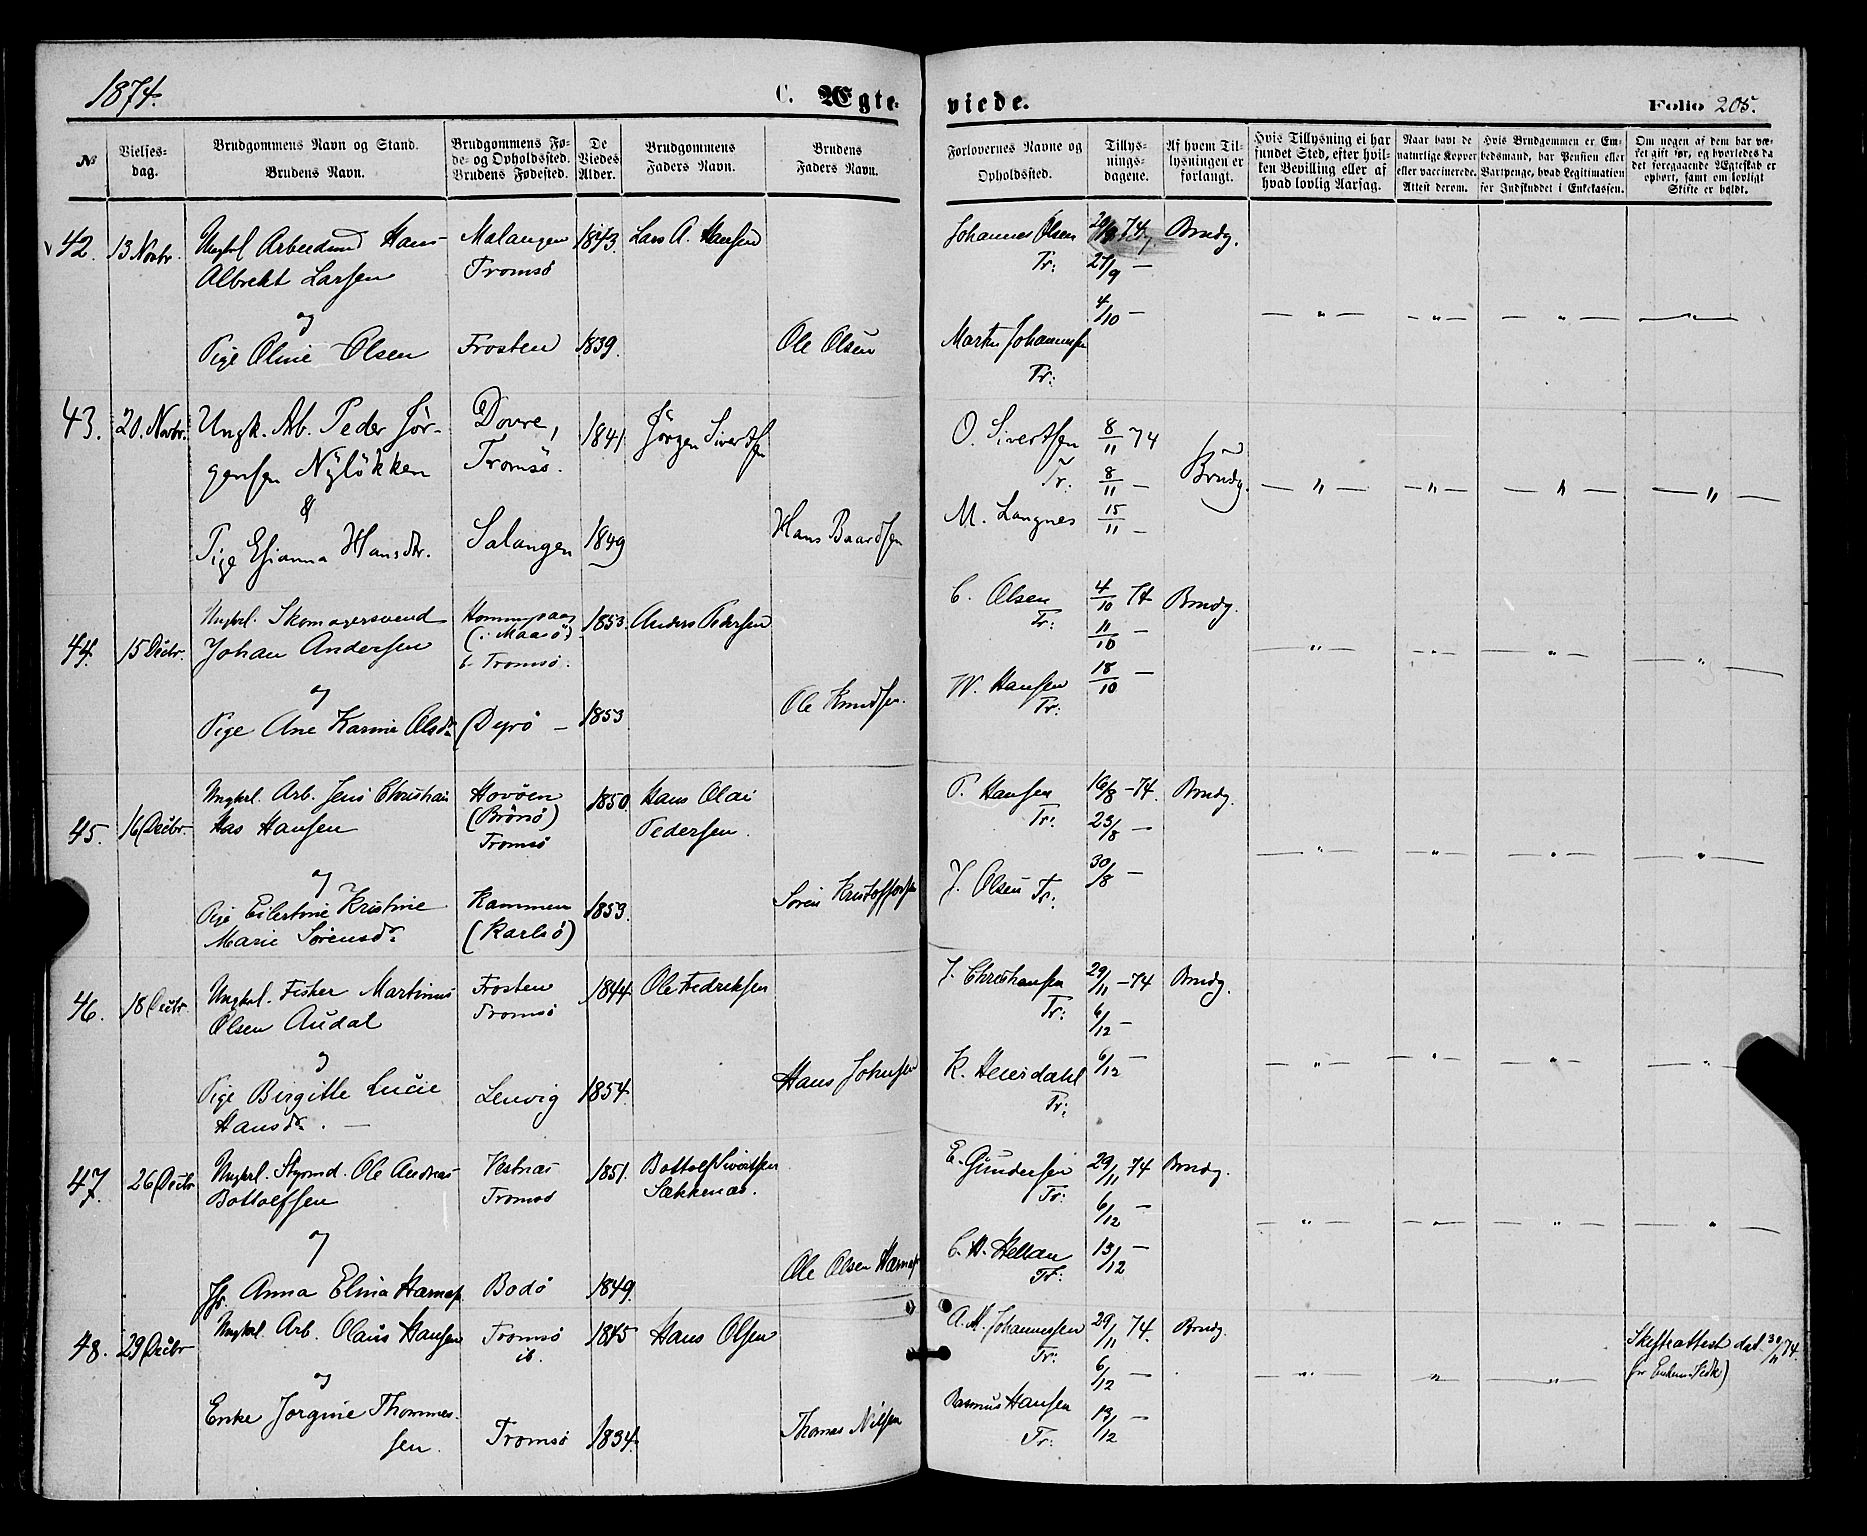 1874.
C. Ægte-
viede.
Folio 205.
№
Vielses-
dag.
Brudgommens Navn og Stand.
Brudens Navn.
Brudgommens Fø-
de- og Opholdssted.
Brudens Fødested.
De
Viedes
Alder.
Brudgommens
Faders Navn.
Brudens
Faders Navn.
Forlovernes Navne og
Opholdssted.
Tillys-
nings-
dagene.
Af hvem Til-
lysningen er
forlangt.
Hvis Tillysning ei har
fundet Sted, efter hvil-
ken Bevilling eller af
hvad lovlig Aarsag.
Naar havt de
naturlige Kopper
eller vaccinerede.
Attest derom.
Hvis Brudgommen er Em-
bedsmand, har Pension eller
Vartpenge, hvad Legitimation
for Indskuddet i Enkekassen.
Om nogen af dem har væ-
ret gift før, og hvorledes da
det foregaaende Ægteskab er
ophørt, samt om lovligt
Skifte er holdt.
42. 13 Novbr. Ungkl Arbeidsmd Hans Malangen 1843. Lars A. Hansen Johannes Olsen 74 Brudg.
Albrekt Larsen Tromsö Tr: 27/9 —
og 4/10 —
Pige Oline Olsen Frosten 1839. Ole Olsen Martin Johannesen
Tr:
43. 20. Novbr. Ungk. Arb. Peder Jör- Dovre, 1841 Jörgen Sivertsen O. Sivertsen 8/11 74 Brudg.
gensen Nylökken Tromsö. Tr: 8/11 —
& M. Langnes 15/11 —
Pige Hansdtr. Salangen 1849 Hans Baardsen
44. 15 Decbr. Ungkl. Skomagersvend 1853. Anders Pedersen C. Olsen 4/10 74 Brudg.
Johan Andersen (i Maasö) Tr: 11/10 —
Tromsö. 18/10 —
og W. Hansen
Pige Ane Karine Olsdr (Dyrö — 1853 Ole Knudsen. Tr:
45. 16 Decbr. Ungkl. Arb. Jens Christian Hovöen 1850. Hans Olai P. Hansen 16/8 -74. Brudg.
Has Hansen (Brönö) Pedersen. Tr: 23/8 —
Tromsö 30/8 —
og
Pige Eilertine Kristine Kammen 1853. Sören Kristoffersen J. Olsen Tr:
Marie Sörensdr (Karlsö)
46. 18 Decbr. Ungkl. Fisker Martinus Frosten 1844. Ole Fedriksen J. Christiansen 29/11 -74 Brudg.
Olsen Audal Tromsö Tr: 6/12 —
og 6/12 —
Pige Birgitte Lucie Lenvig 1854. Hans Johnsen K. Heierdahl
Hansdr. — Tr:
47. 26 Decbr Ungkl. Styrmd. Ole Andreas Vestnæs 1851. Bottolf Sivertsen E. Gundersen 29/11 74 Brudg.
Bottolfsen Tromsö Sækkenæs. Tr: 6/12 —
og C. H. Hellan 13/12 —
Jfr. Anna Elina Hamnæs Bodö 1849. Ole Olsen Hamnæs Tr:
48. 29 Decbr Ungkl. Arb. Olaus Hansen Tromsö 1845 Hans Olsen A. M. Johannessen 29/11 74. Brudg. Skifteattest dat. 30/11 74.
ib. Tr: 6/12 —
og Rasmus Hansen 13/12 —
Enke Jorgine Thommes- Tromsö 1834. Thomas Nilsen Tr:
sen.